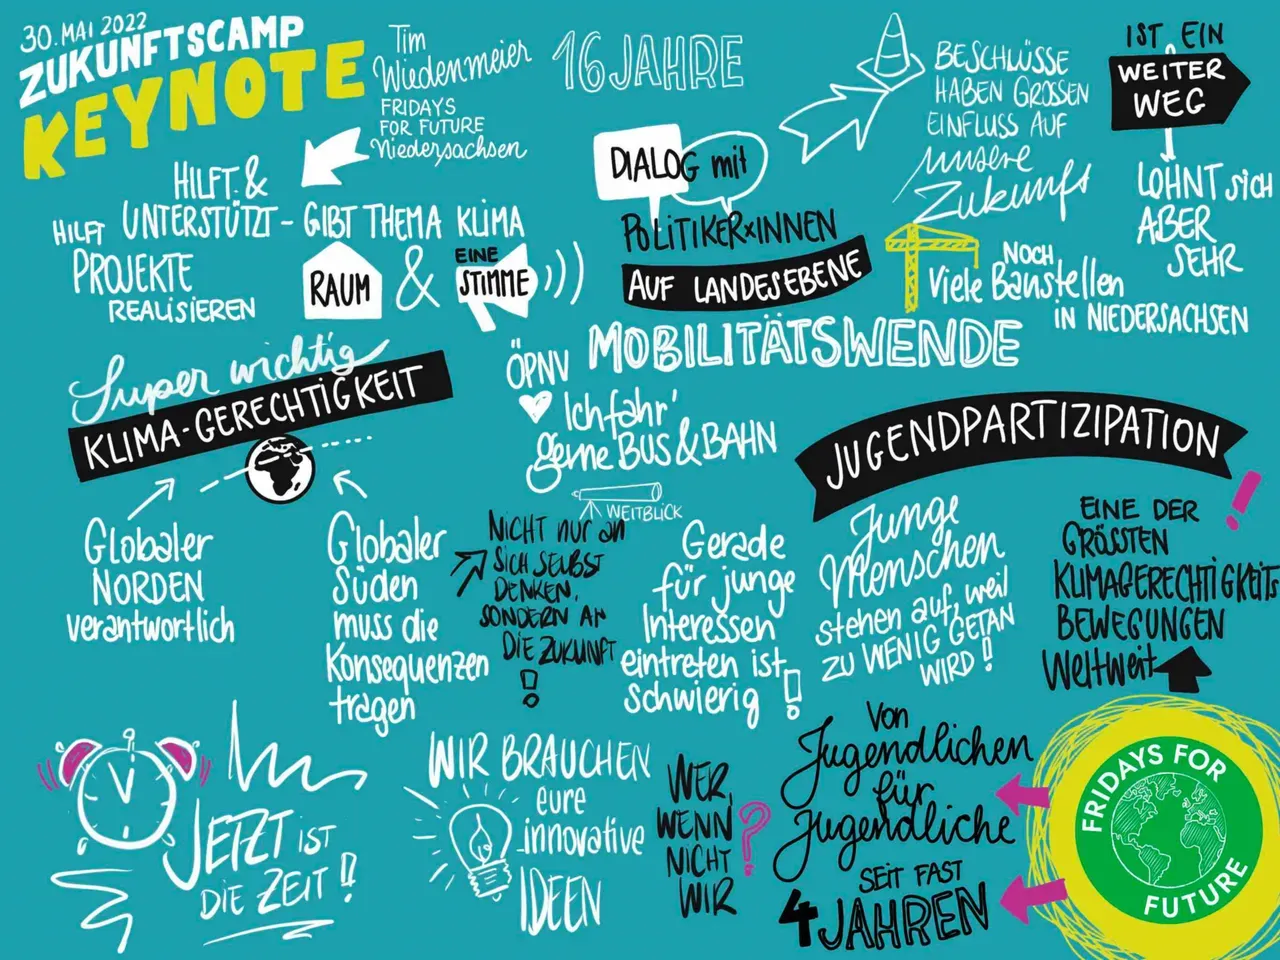 30. MAI 2022
ZUKUNFTSCAMP
KEYNOTE
Tim
Wiedenmeier
FRIDAYS
FOR FUTURE
Niedersachsen
16 JAHRE
HILFT &
UNTERSTÜTZT - GIBT THEMA KLIMA
HILFT
PROJEKTE
REALISIEREN
RAUM
&
EINE
STIMME
DIALOG mit
POLITIKER*INNEN
AUF LANDESEBENE
BESCHLÜSSE
HABEN GROSSEN
EINFLUSS AUF
unsere
Zukunft
IST EIN
WEITER
WEG
LOHNT SICH
ABER
SEHR
NOCH
Viele Baustellen
IN NIEDERSACHSEN
Super wichtig
KLIMA-GERECHTIGKEIT
Globaler
NORDEN
verantwortlich
Globaler
Süden
muss die
Konsequenzen
tragen
ÖPNV
MOBILITÄTSWENDE
Ich fahr'
gerne BUS & BAHN
WEITBLICK
NICHT nur an
SICH SELBST
DENKEN,
SONDERN AN
DIE ZUKUNFT
!
Gerade
für junge
Interessen
eintreten ist
schwierig !
JUGENDPARTIZIPATION
Junge
Menschen
stehen auf, weil
ZU WENIG GETAN
WIRD !
EINE DER
GRÖSSTEN
KLIMAGERECHTIGKEITS
BEWEGUNGEN
Weltweit
!
JETZT IST
DIE ZEIT !
WIR BRAUCHEN
eure
innovative
IDEEN
WER,
WENN
NICHT
WIR
?
Von
Jugendlichen
für
Jugendliche
SEIT FAST
4 JAHREN
FRIDAYS FOR
FUTURE